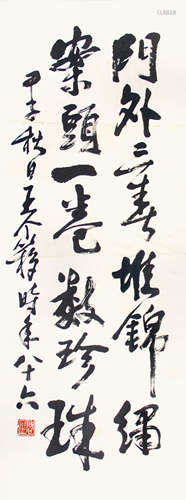 門外三春堆錦繡
案頭一卷數珍珠
甲子秋日王个簃時年八十六